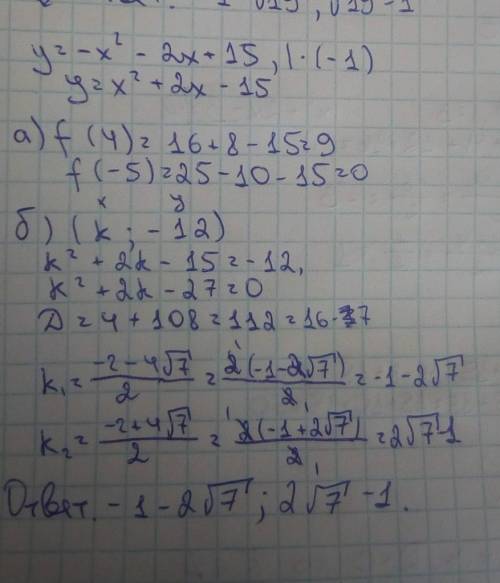 1 √19, √19 - 1
y = -x² - 2x + 15, | · (-1)
y = x² + 2x - 15
а) f(4) = 16 + 8 - 15 = 9
f(-5) = 25 - 10 - 15 = 0
x y
б) (k; -12)
k² + 2k - 15 = -12,
k² + 2k - 27 = 0
D = 4 + 108 = 112 = 16 · 7
k₁ = (-2 - 4√7)/2 = 2(-1 - 2√7)/2 = -1 - 2√7
k₂ = (-2 + 4√7)/2 = 2(-1 + 2√7)/2 = 2√7 - 1
Ответ. -1 - 2√7; 2√7 - 1.